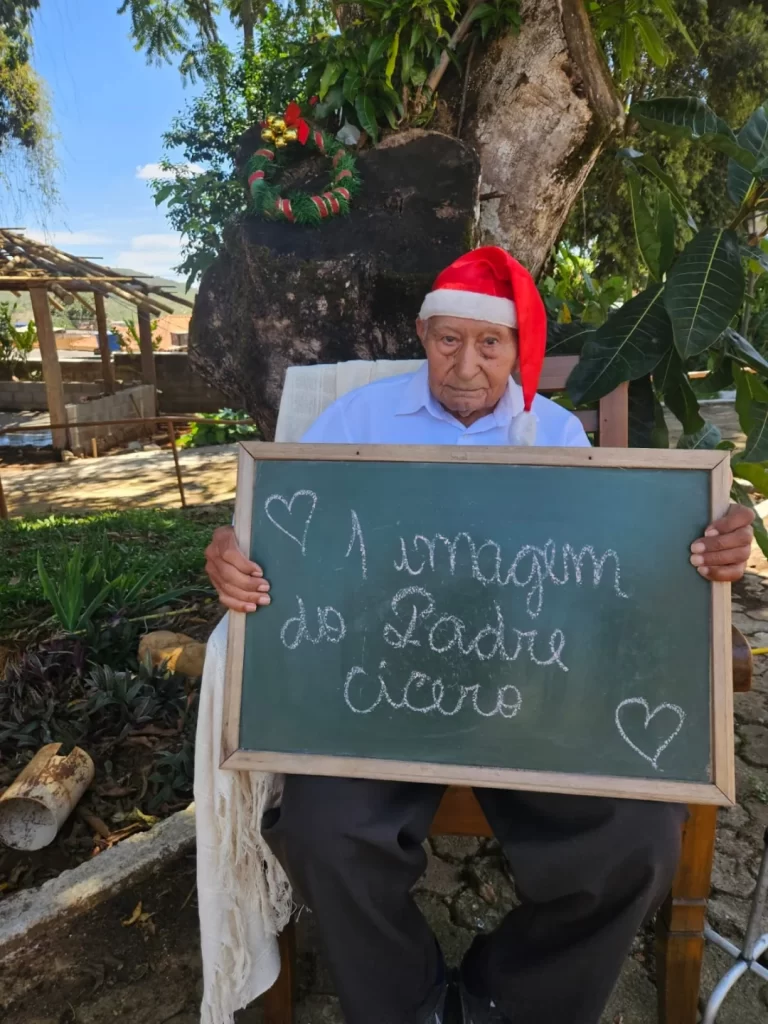 1 imagem
do Padre
cicero